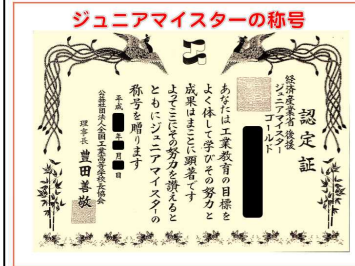 ジュニアマイスターの称号
認定証
経済産業省 後援
ジュニアマイスター
ゴールド
あなたは工業教育の目標を
よく体して学びその努力と
成果はまことに顕著です
よって三にその努力を讃えると
ともにジュニアマイスターの
称号を贈ります
平成 年 月 日
公益社団法人全国工業高等学校長協会
理事長 豊田善敬